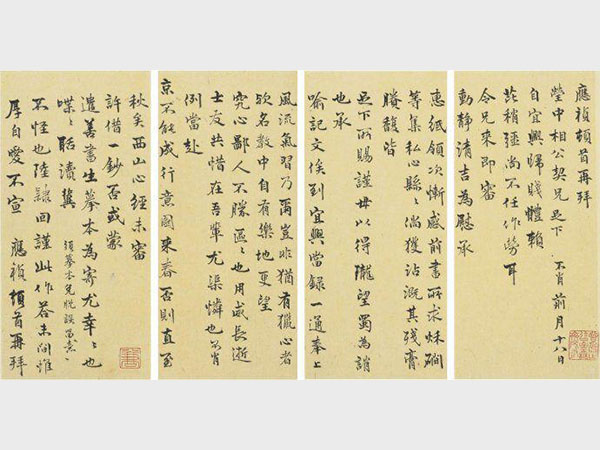 應禎頓首再拜
瑩中相公契兄足下 不肖前月十八日
自宜興歸賤體賴
庇稍 尚不任作勞耳
令兄來即審
動靜清吉為慰承
惠紙領次慚感前書所求秋碉
等集私心懸〻倘獲沾溉其殘膏
賸馥皆
足下所賜謹毋以得隴望蜀為誚
也承
喻記文俟到宜興當錄一通奉上
風流氣習乃爾豈非猶有獵心者
歟名教中自有樂地更望
究心鄙人不勝區〻也用威長逝
士友共惜在吾輩尤深憐也不肖
例當赴
京不能成行意圖來春否則直至
秋矣西山心經未審
許借一鈔否或蒙
遣善書生摹本為寄尤幸〻也
喋〻聒瀆冀 須摹本
不怪也陸隸回謹此作答未間惟
厚自愛不宣 應禎頓首再拜